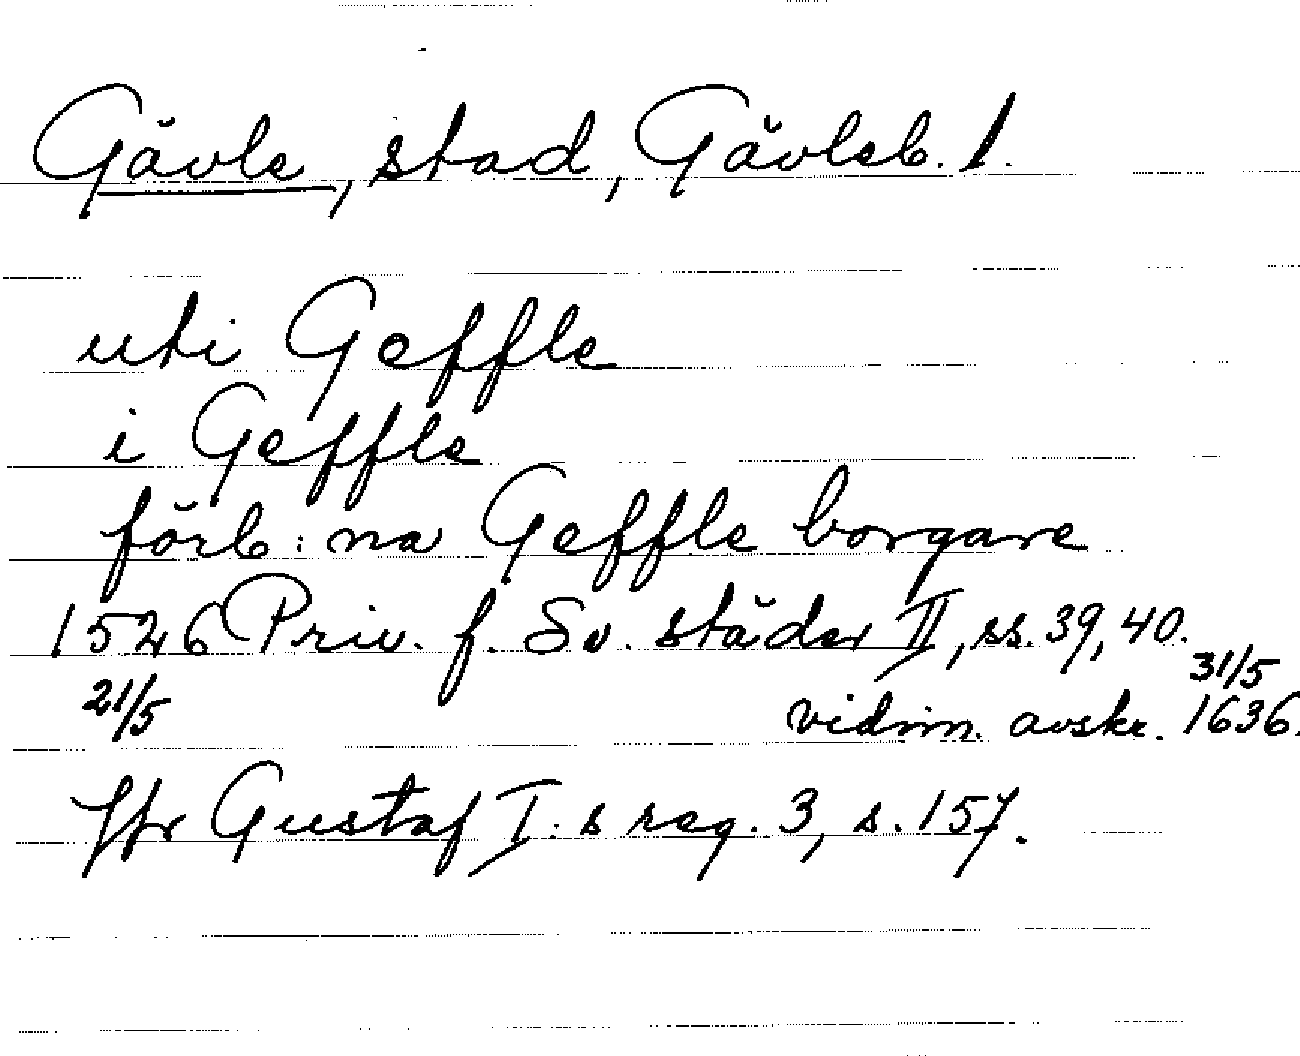 Gävle, stad, Gävleb. l.
uti Geffle
i Geffle
förb: na Geffle borgare
1526 Priv. f. Sv. städer II, ss. 39, 40.
21/5 vidim. avskr. 31/5 1636.
Jfr Gustaf I: s reg. 3, s. 157.